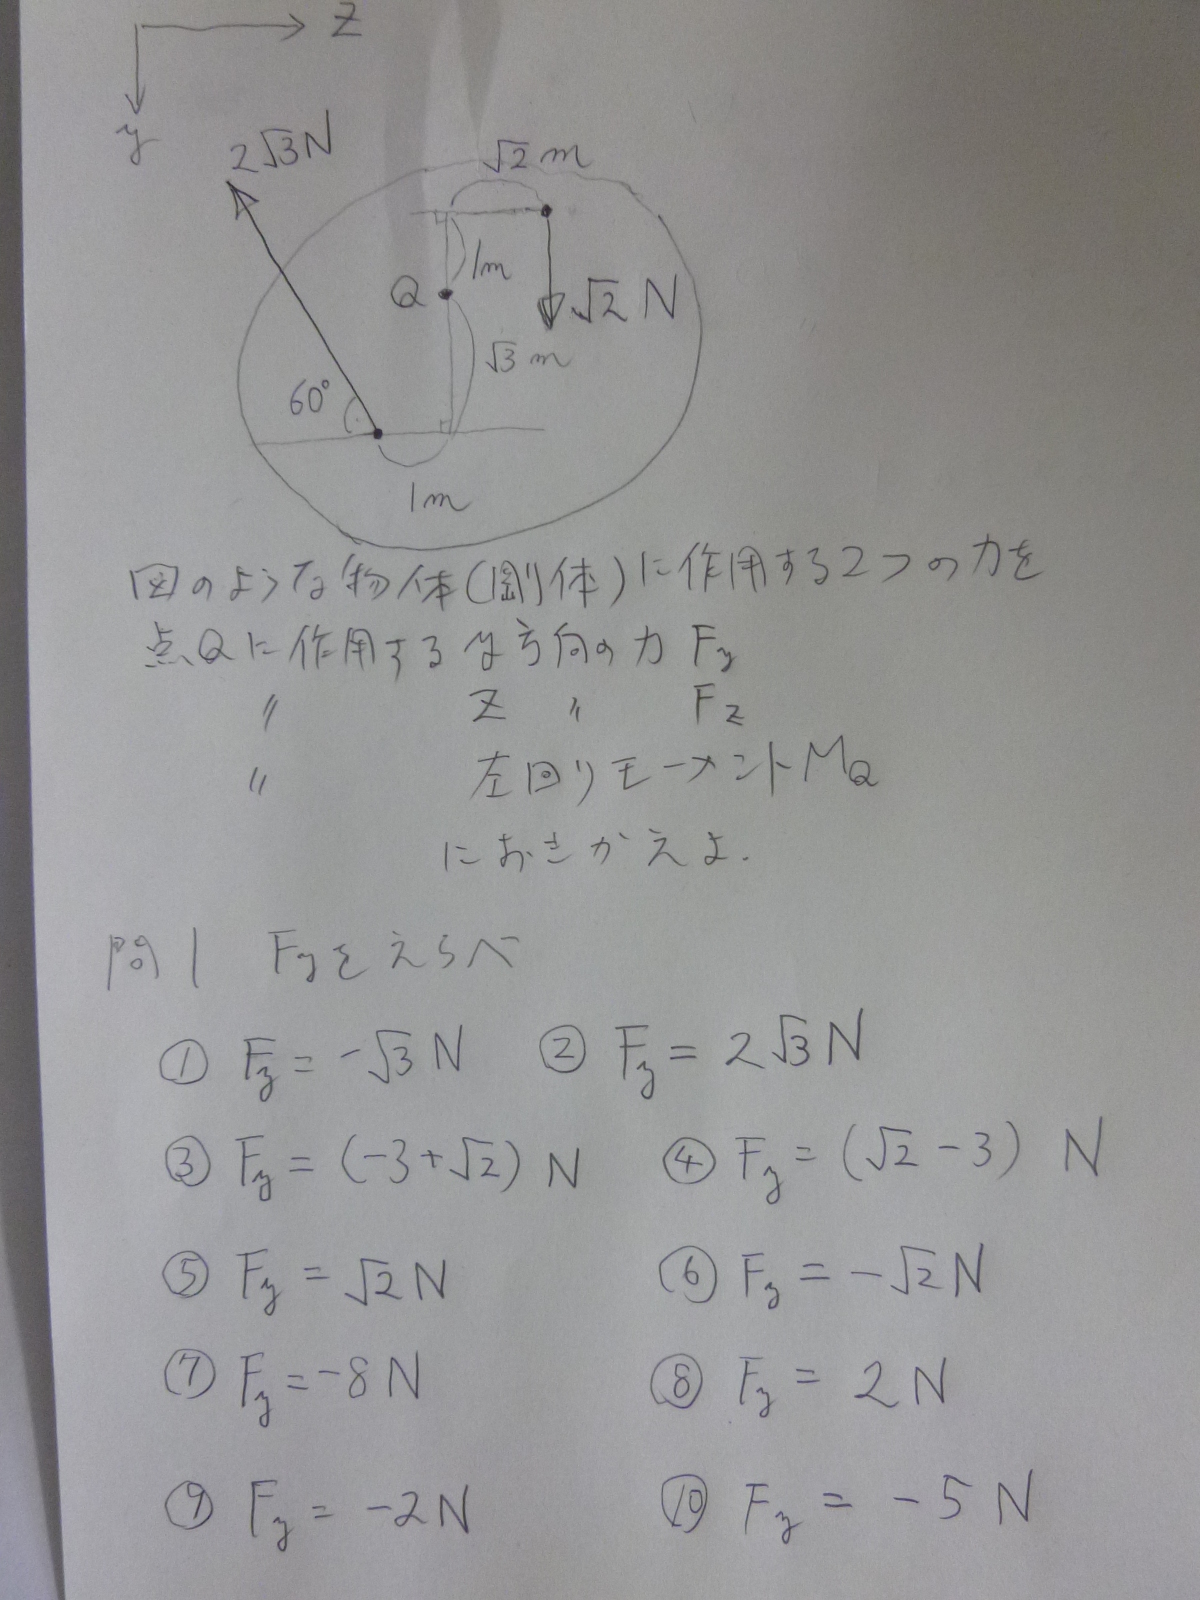 z
y
2√3N
√2 m
1m
Q
√2 N
√3 m
60°
1m
図のような物体(剛体)に作用する2つの力を
点Qに作用するy方向の力 Fy
〃 z 〃 Fz
〃 左回りモーメントMQ
におきかえよ.
問1 Fyをえらべ
① Fy = -√3 N ② Fy = 2√3 N
③ Fy = (-3+√2) N ④ Fy = (√2 - 3) N
⑤ Fy = √2 N ⑥ Fy = -√2 N
⑦ Fy = -8 N ⑧ Fy = 2 N
⑨ Fy = -2 N ⑩ Fy = -5 N